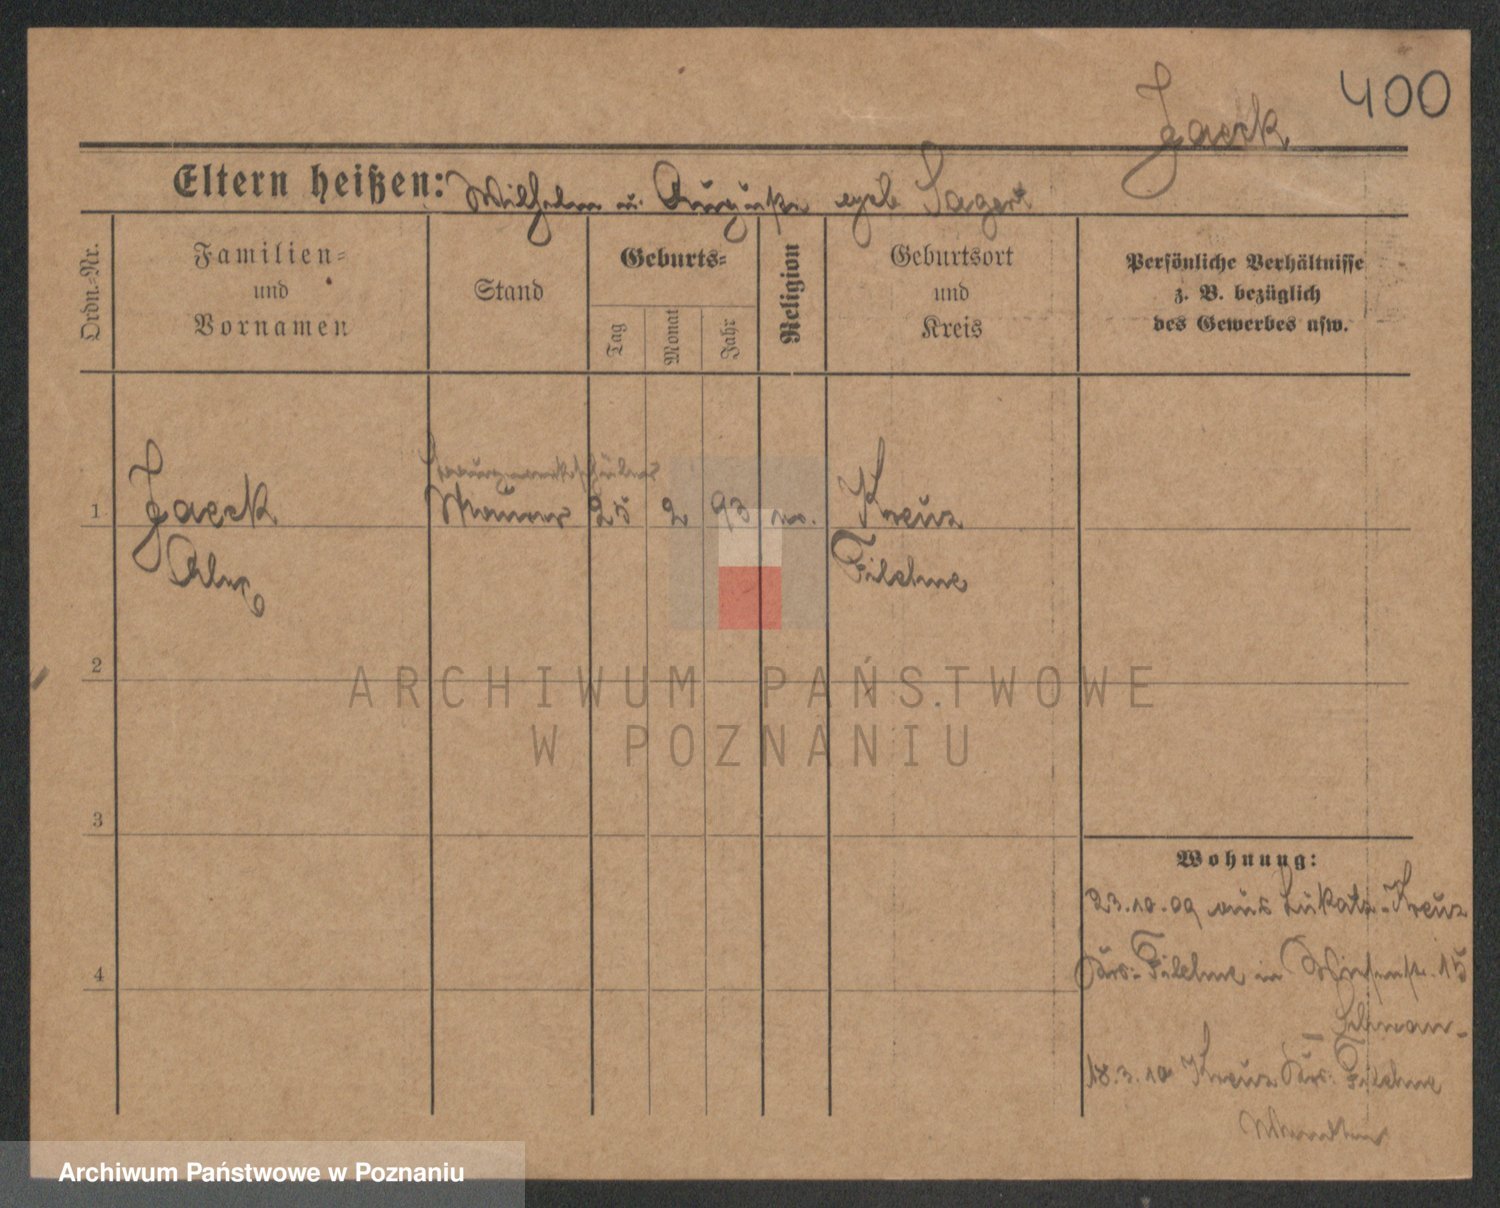 400
Jaeck
Eltern heißen: Wilhelm u. geb. Sagert
Ordn.-Nr.
Familien-
und
Vornamen
Stand
Geburts-
Tag
Monat
Jahr
Religion
Geburtsort
und
Kreis
Persönliche Verhältnisse
z. B. bezüglich
des Gewerbes usw.
Baugewerkschüler
1 Jaeck Maurer 25 2 93 ev. Kreuz
Alex Filehne
2
ARCHIWUM PAŃSTWOWE
W POZNANIU
3
Wohnung:
23.10.09 aus Lukatz-Kreuz
4
Krs. Filehne in 15
18.3.10 Kreuz Krs. Filehne
Archiwum Państwowe w Poznaniu